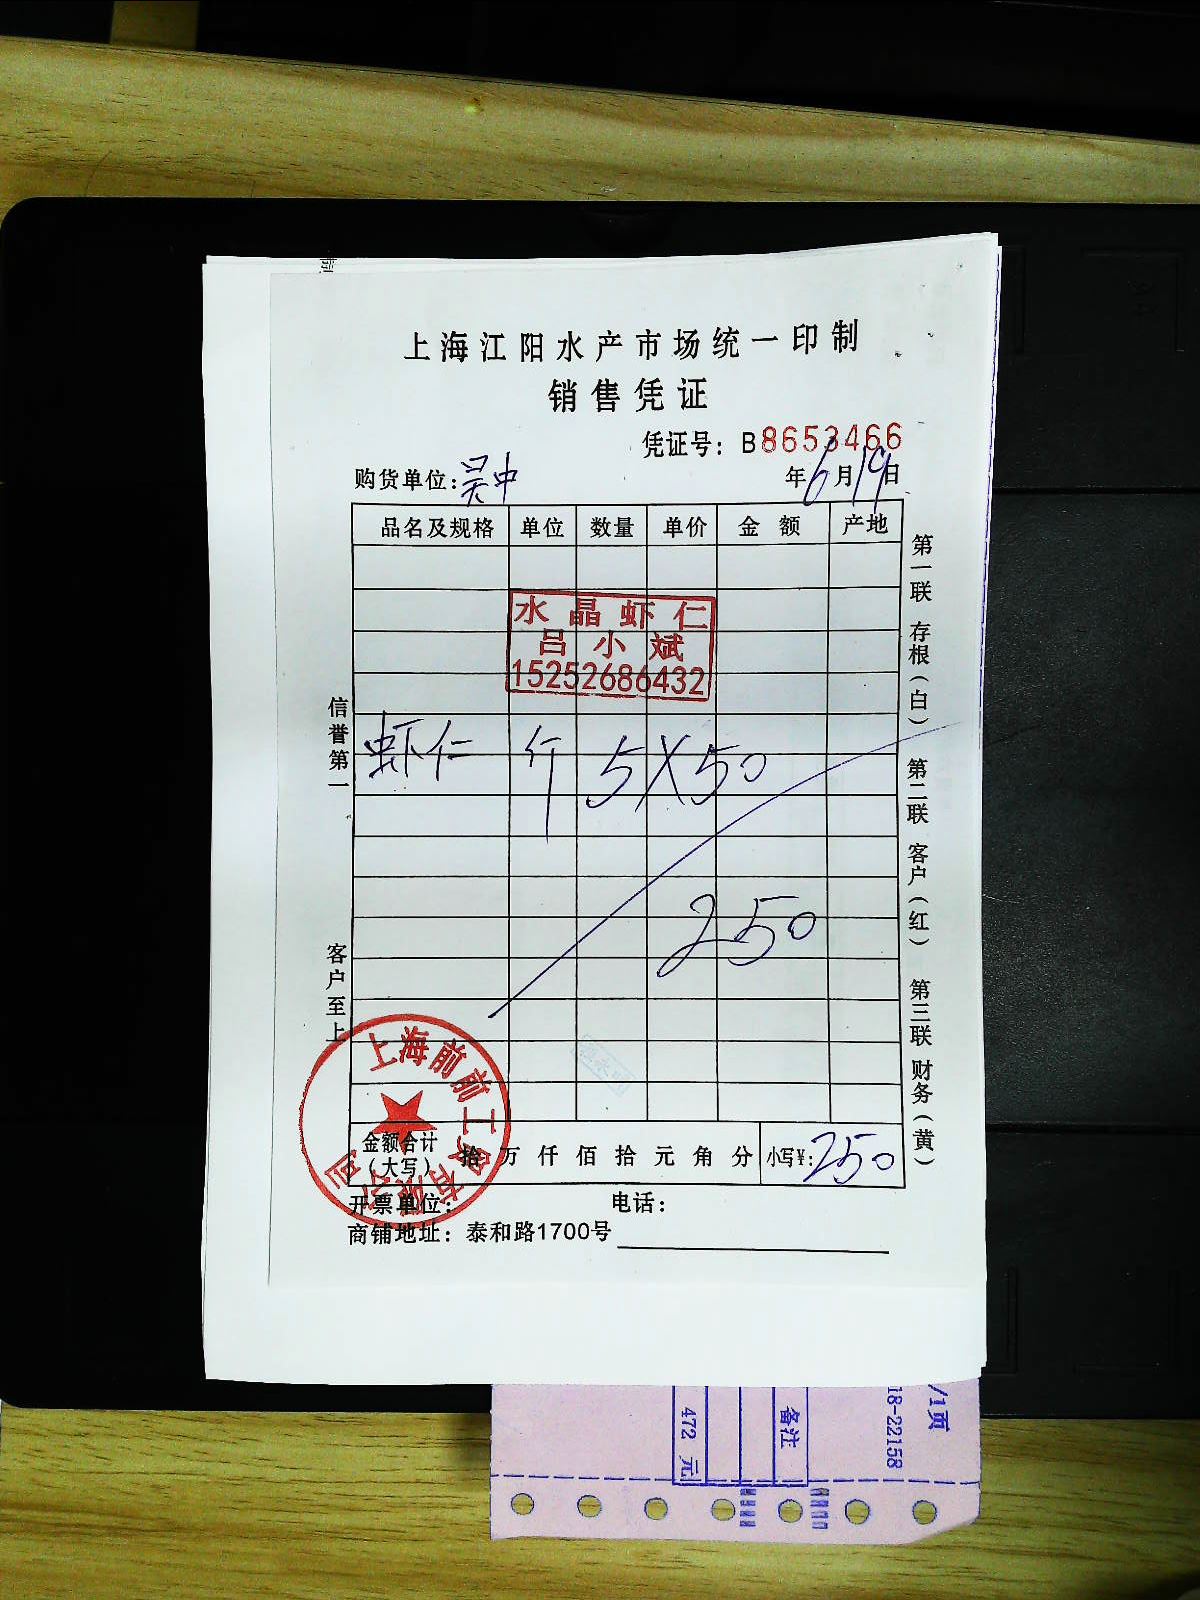 上海江阳水产市场统一印制
销售凭证
凭证号：B8653466
购货单位：吴中 年6月19日
品名及规格 单位 数量 单价 金额 产地
水晶虾仁
吕小斌
15252686432
虾仁 斤 5X50
250
金额合计（大写） 拾万仟佰拾元角分 小写¥：250
开票单位： 电话：
商铺地址：泰和路1700号
信誉第一 客户至上
第一联 存根（白） 第二联 客户（红） 第三联 财务（黄）
上海前前工贸有限公司
/1页
18-22158
备注
472 元